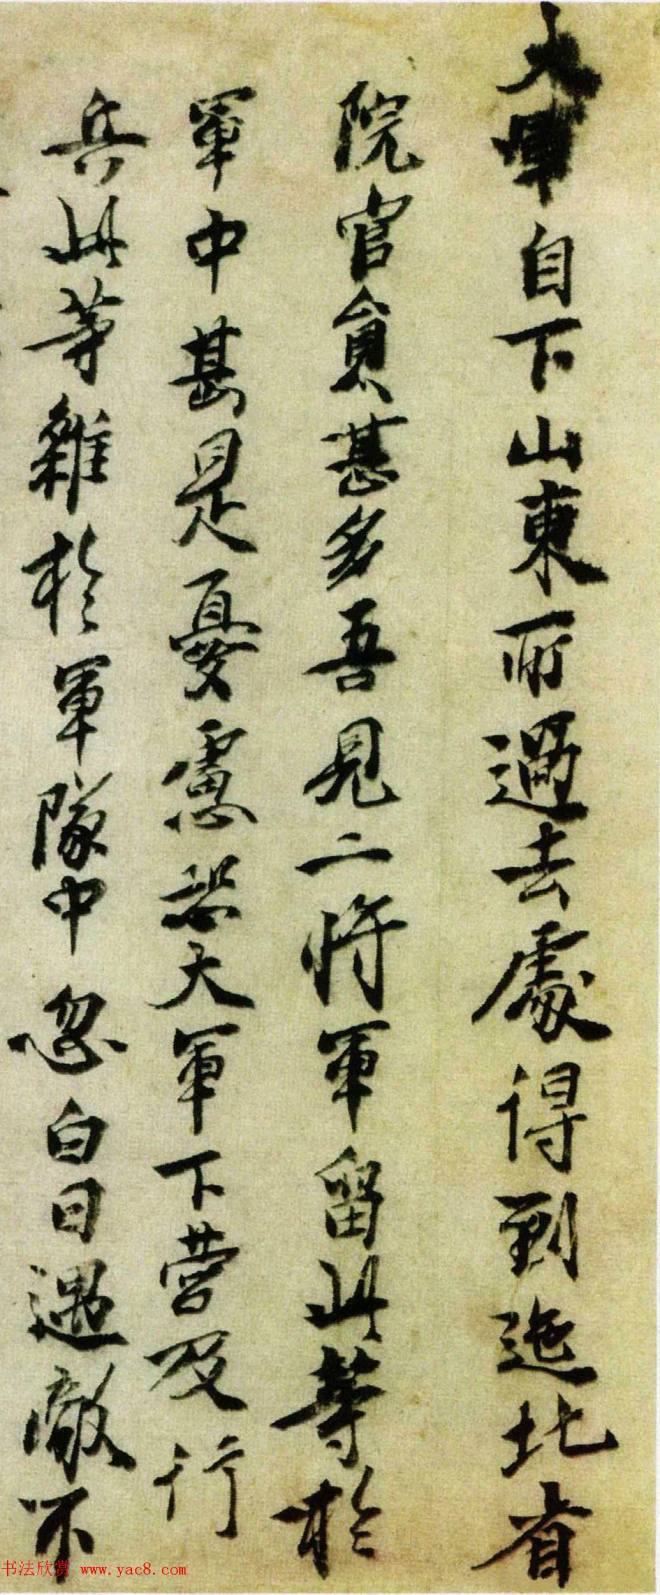 大軍自下山東所過去處得到迤北省
院官員甚多吾見二將軍留此等於
軍中甚是憂慮恐大軍下營及行
兵此等雜於軍隊中忽白日遇敵不
书法欣赏 www.yac8.com